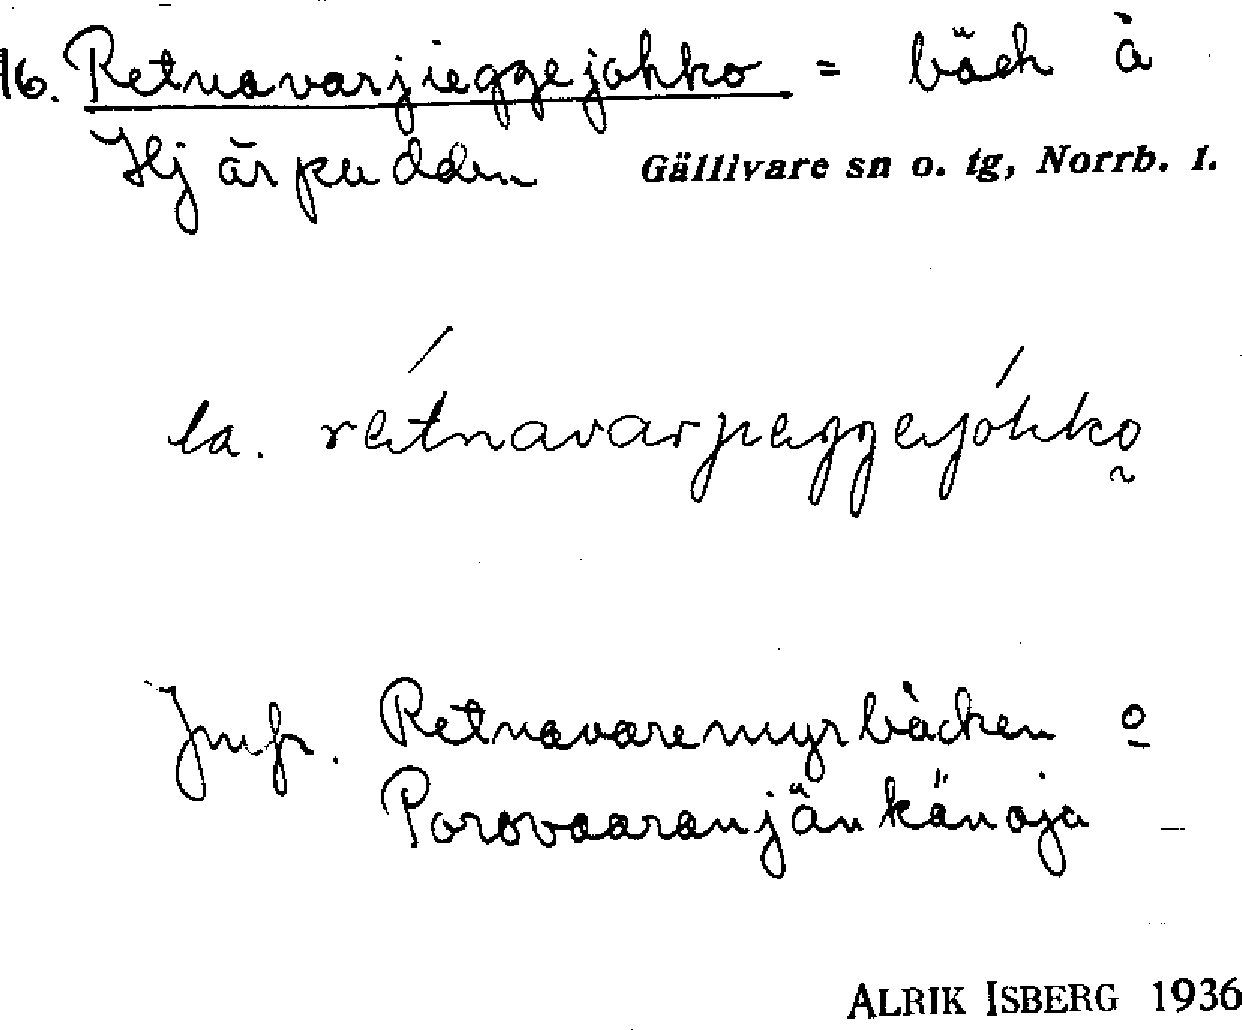 16. Retnavarjieggejohko = bäck å
Hjärpudden Gällivare sn o. tg, Norrb. l.
la. rétnavarjieggejóhko̰
Jmfr. Retnavaremyrbäcken o
Porovaaranjänkänoja –
ALRIK ISBERG 1936